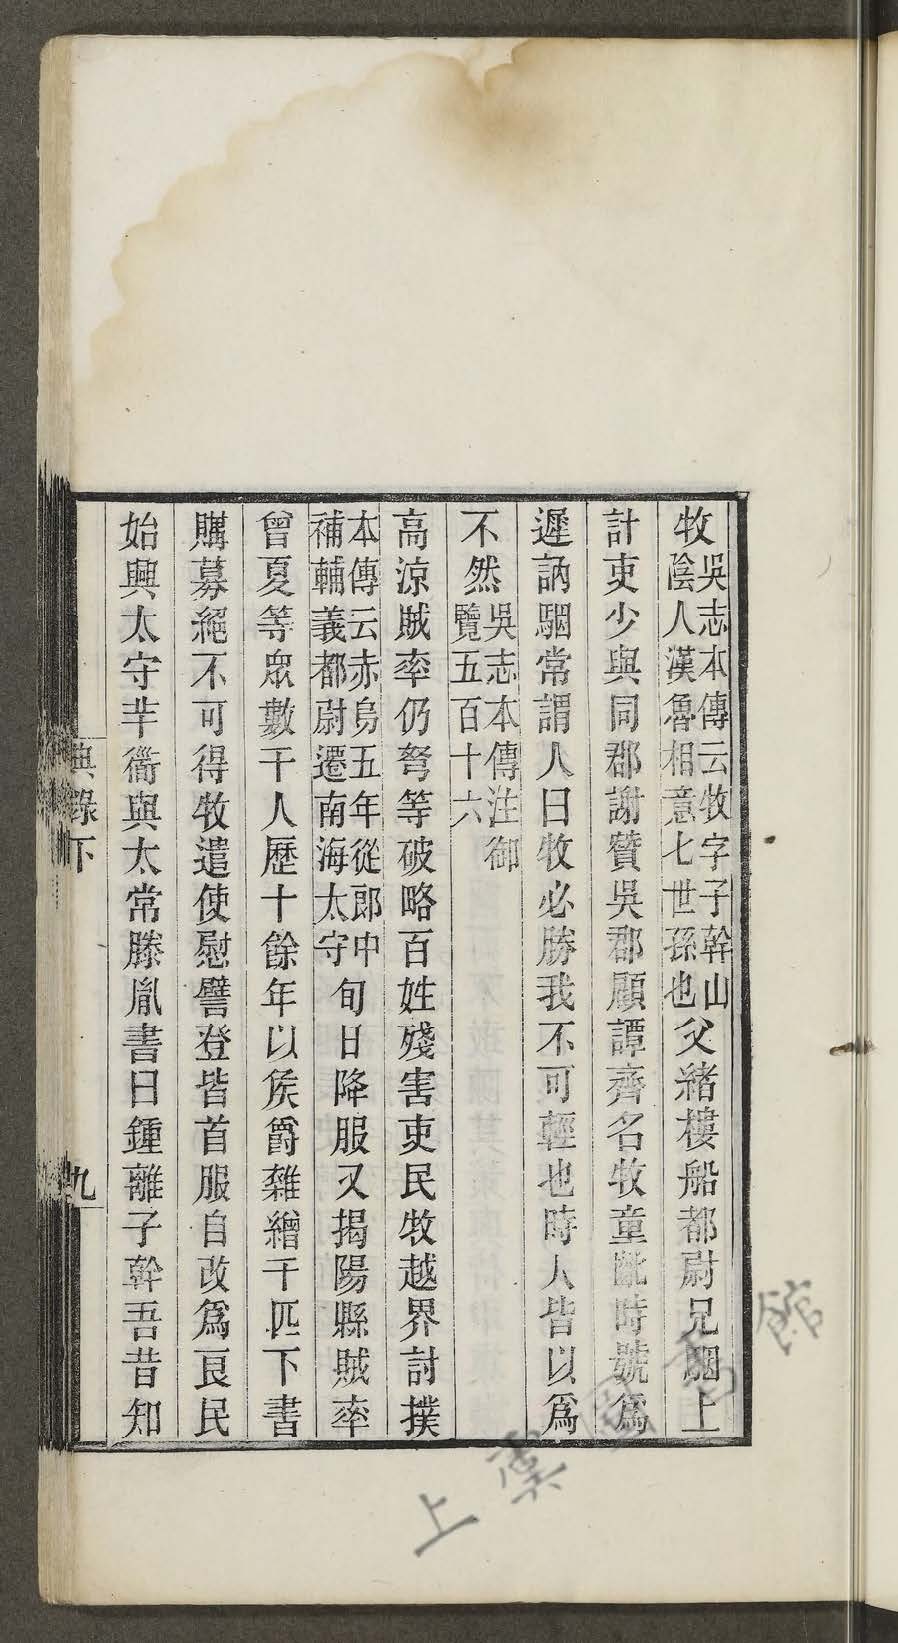 牧吳志本傳云牧字子幹山陰人漢魯相意七世孫也父緒樓船都尉兄駰上
計吏少與同郡謝贊吳郡顧譚齊名牧童齔時號爲
遲訥駰常謂人曰牧必勝我不可輕也時人皆以爲
不然吳志本傳注御覽五百十六
高涼賊率仍弩等破略百姓殘害吏民牧越界討撲
本傳云赤烏五年從郎中補輔義都尉遷南海太守旬日降服又揭陽縣賊率
曾夏等眾數千人歷十餘年以侯爵雜繒千匹下書
購募絕不可得牧遣使慰譬登皆首服自改爲良民
始興太守羊衜與太常滕胤書曰鍾離子幹吾昔知
典錄下
九
上虞圖書館